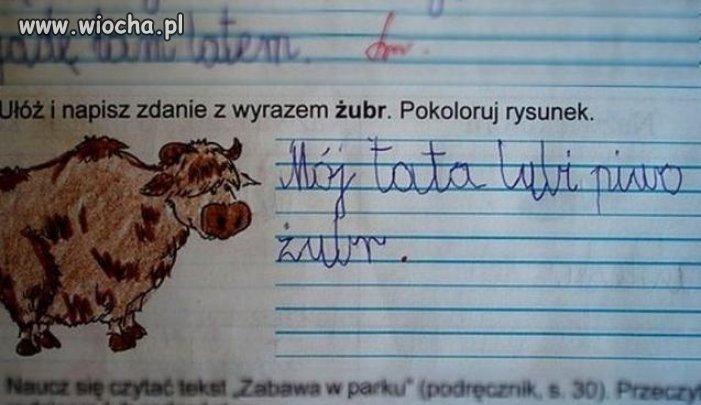 www.wiocha.pl
jadę tam latem.
Ułóż i napisz zdanie z wyrazem żubr. Pokoloruj rysunek.
Mój tata lubi piwo
żubr.
Naucz się czytać tekst „Zabawa w parku" (podręcznik, s. 30). Przeczyt